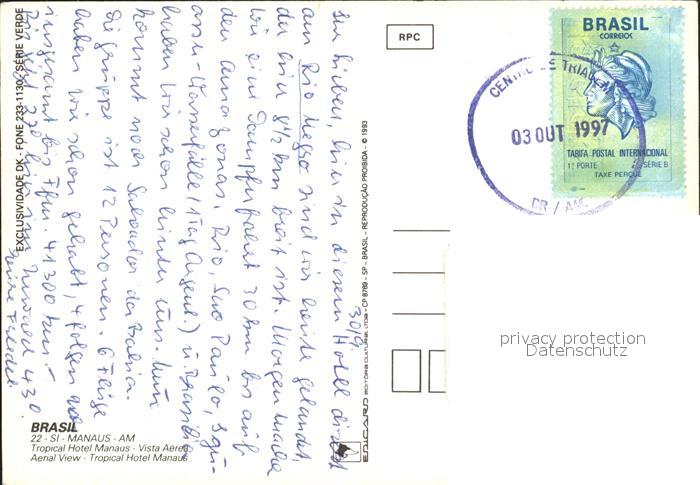 RPC
BRASIL
CORREIOS
CENTRO DE TRIAGEM
03 OUT 1997
DR / AM
TARIFA POSTAL INTERNACIONAL
1º PORTE SÉRIE B
TAXE PERÇUE
30/9
Ihr Lieben, hier in diesem Hotel direkt
am Rio Negro sind wir heute gelandet,
der hier 8½ km breit ist. Morgen machen
wir eine Dampferfahrt 30 km bis auf
den Amazonas. Rio, Sao Paulo, Igu-
assu-Wasserfälle (1 Tag Argent.) u. Brasilia
haben wir schon hinter uns. Nun
kommt noch Salvador da Bahia.
Die Gruppe ist 12 Personen. 6 Flüge
haben wir schon gehabt, 4 folgen noch
insgesamt bis Ffm. 41 300 km! -
430
EXCLUSIVIDADE DK - FONE 233-1130 - SÉRIE VERDE
BRASIL
22 - SI - MANAUS - AM
Tropical Hotel Manaus - Vista Aérea
Aerial View - Tropical Hotel Manaus
EDICARD EDITORA CULTURAL LTDA - CP 8769 - SP - BRASIL - REPRODUÇÃO PROIBIDA - © 1993
privacy protection
Datenschutz